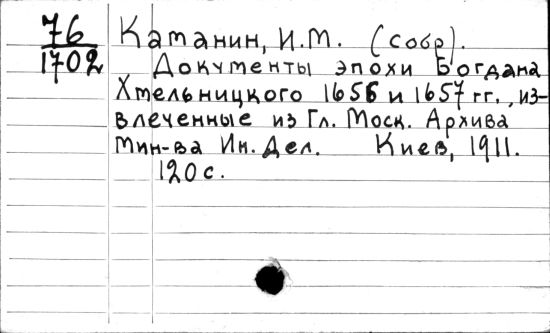 76
1702
Каманин, И.М. (собр).
Документы эпохи Богдана
Хмельницкого 1656 и 1657 гг., из-
влеченные из Гл. Моск. Архива
Мин-ва Ин. Дел. Киев, 1911.
120 с.